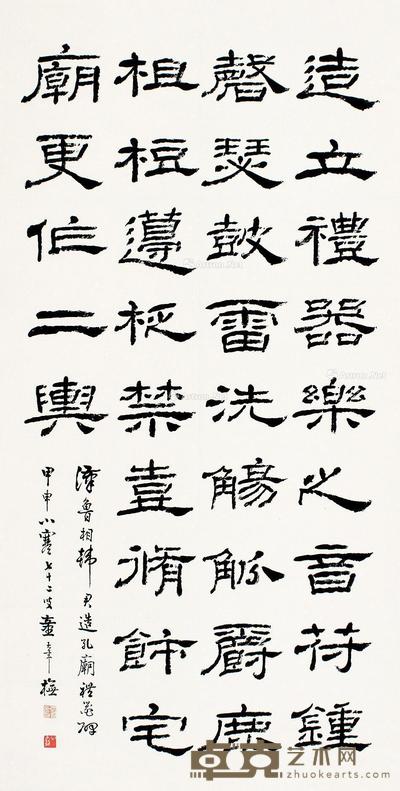 造立禮器樂之音苻鍾
磬瑟鼓雷洗觴觚爵鹿
柤梪籩柉禁壺脩飾宅
廟更作二輿
漢魯相韩君造孔廟禮器碑
甲申小寒七十二叟
卓克艺术网
zhuokearts.com
Artron.Net